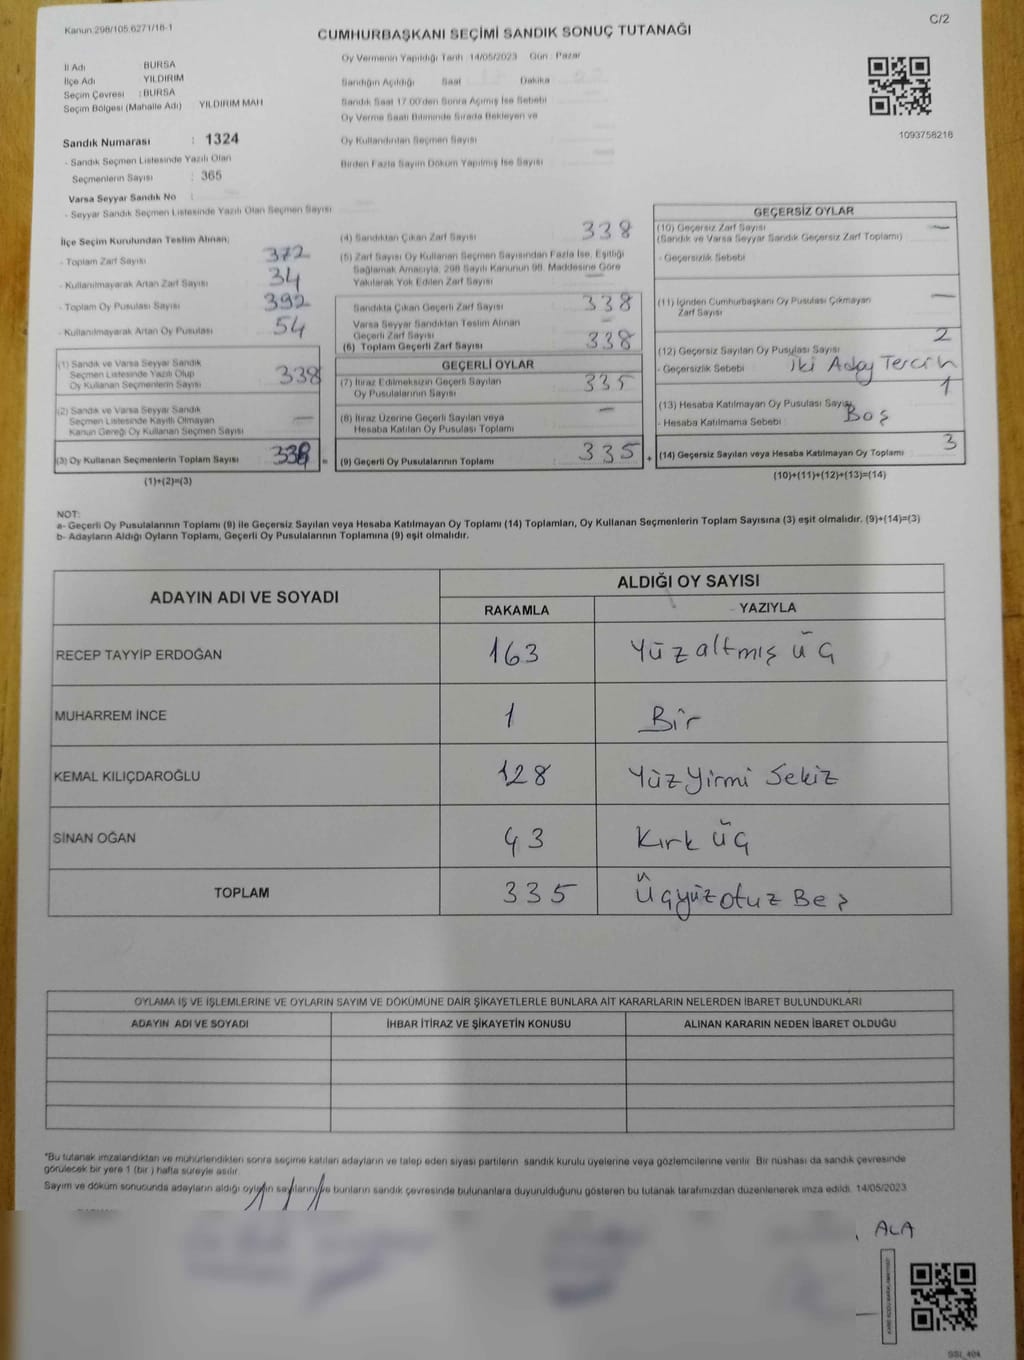 Kanun 298/105,6271/16-1
C/2
CUMHURBAŞKANI SEÇİMİ SANDIK SONUÇ TUTANAĞI
İl Adı BURSA
İlçe Adı YILDIRIM
Seçim Çevresi : BURSA
Seçim Bölgesi (Mahalle Adı) YILDIRIM MAH
Sandık Numarası : 1324
- Sandık Seçmen Listesinde Yazılı Olan
Seçmenlerin Sayısı : 365
Varsa Seyyar Sandık No :
- Seyyar Sandık Seçmen Listesinde Yazılı Olan Seçmen Sayısı
Oy Vermenin Yapıldığı Tarih 14/05/2023 Gün : Pazar
Sandığın Açıldığı Saat Dakika
Sandık Saat 17.00'den Sonra Açılmış İse Sebebi
Oy Verme Saati Bitiminde Sırada Bekleyen ve
Oy Kullandırılan Seçmen Sayısı
Birden Fazla Sayım Döküm Yapılmış İse Sayısı
1093758218
İlçe Seçim Kurulundan Teslim Alınan;
- Toplam Zarf Sayısı 372
- Kullanılmayarak Artan Zarf Sayısı 34
- Toplam Oy Pusulası Sayısı 392
- Kullanılmayarak Artan Oy Pusulası 54
(1) Sandık ve Varsa Seyyar Sandık
Seçmen Listesinde Yazılı Olup
Oy Kullanan Seçmenlerin Sayısı 338
(2) Sandık ve Varsa Seyyar Sandık
Seçmen Listesinde Kayıtlı Olmayan
Kanun Gereği Oy Kullanan Seçmen Sayısı —
(3) Oy Kullanan Seçmenlerin Toplam Sayısı 338 =
(1)+(2)=(3)
(4) Sandıktan Çıkan Zarf Sayısı 338
(5) Zarf Sayısı Oy Kullanan Seçmen Sayısından Fazla İse, Eşitliği
Sağlamak Amacıyla, 298 Sayılı Kanunun 98. Maddesine Göre
Yakılarak Yok Edilen Zarf Sayısı —
Sandıkta Çıkan Geçerli Zarf Sayısı 338
Varsa Seyyar Sandıktan Teslim Alınan
Geçerli Zarf Sayısı —
(6) Toplam Geçerli Zarf Sayısı 338
GEÇERLİ OYLAR
(7) İtiraz Edilmeksizin Geçerli Sayılan
Oy Pusulalarının Sayısı 335
(8) İtiraz Üzerine Geçerli Sayılan veya
Hesaba Katılan Oy Pusulası Toplamı —
(9) Geçerli Oy Pusulalarının Toplamı 335 +
GEÇERSİZ OYLAR
(10) Geçersiz Zarf Sayısı —
(Sandık ve Varsa Seyyar Sandık Geçersiz Zarf Toplamı)
- Geçersizlik Sebebi
(11) İçinden Cumhurbaşkanı Oy Pusulası Çıkmayan —
Zarf Sayısı
(12) Geçersiz Sayılan Oy Pusulası Sayısı 2
- Geçersizlik Sebebi iki Aday Tercih
(13) Hesaba Katılmayan Oy Pusulası Sayısı 1
- Hesaba Katılmama Sebebi Boş
(14) Geçersiz Sayılan veya Hesaba Katılmayan Oy Toplamı 3
(10)+(11)+(12)+(13)=(14)
NOT:
a- Geçerli Oy Pusulalarının Toplamı (9) ile Geçersiz Sayılan veya Hesaba Katılmayan Oy Toplamı (14) Toplamları, Oy Kullanan Seçmenlerin Toplam Sayısına (3) eşit olmalıdır. (9)+(14)=(3)
b- Adayların Aldığı Oyların Toplamı, Geçerli Oy Pusulalarının Toplamına (9) eşit olmalıdır.
ADAYIN ADI VE SOYADI
ALDIĞI OY SAYISI
RAKAMLA YAZIYLA
RECEP TAYYİP ERDOĞAN 163 Yüzaltmış üç
MUHARREM İNCE 1 Bir
KEMAL KILIÇDAROĞLU 128 Yüzyirmi Sekiz
SİNAN OĞAN 43 Kırk üç
TOPLAM 335 Üçyüzotuz Beş
OYLAMA İŞ VE İŞLEMLERİNE VE OYLARIN SAYIM VE DÖKÜMÜNE DAİR ŞİKAYETLERLE BUNLARA AİT KARARLARIN NELERDEN İBARET BULUNDUKLARI
ADAYIN ADI VE SOYADI İHBAR İTİRAZ VE ŞİKAYETİN KONUSU ALINAN KARARIN NEDEN İBARET OLDUĞU
*Bu tutanak imzalandıktan ve mühürlendikten sonra seçime katılan adayların ve talep eden siyasi partilerin sandık kurulu üyelerine veya gözlemcilerine verilir. Bir nüshası da sandık çevresinde
görülecek bir yere 1 (bir ) hafta süreyle asılır.
Sayım ve döküm sonucunda adayların aldığı oyların sayılarını ve bunların sandık çevresinde bulunanlara duyurulduğunu gösteren bu tutanak tarafımızdan düzenlenerek imza edildi. 14/05/2023
ALA